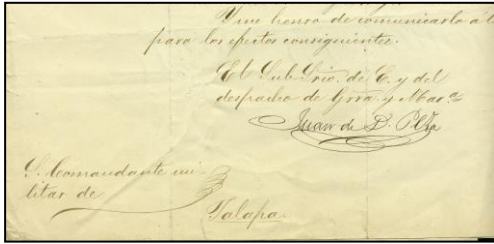 Y me honro de comunicarlo a
para los efectos consiguientes.
El Sub Srio. de E. y del
despacho de Grra. y Mar.ª
Juan de D. Peza
S. Comandante mi-
litar de
Jalapa.